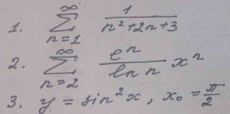 1. $\sum_{n=1}^{\infty} \frac{1}{n^2+2n+3}$
2. $\sum_{n=2}^{\infty} \frac{e^n}{\ln n} x^n$
3. $y = \sin^2 x, x_0 = \frac{\pi}{2}$